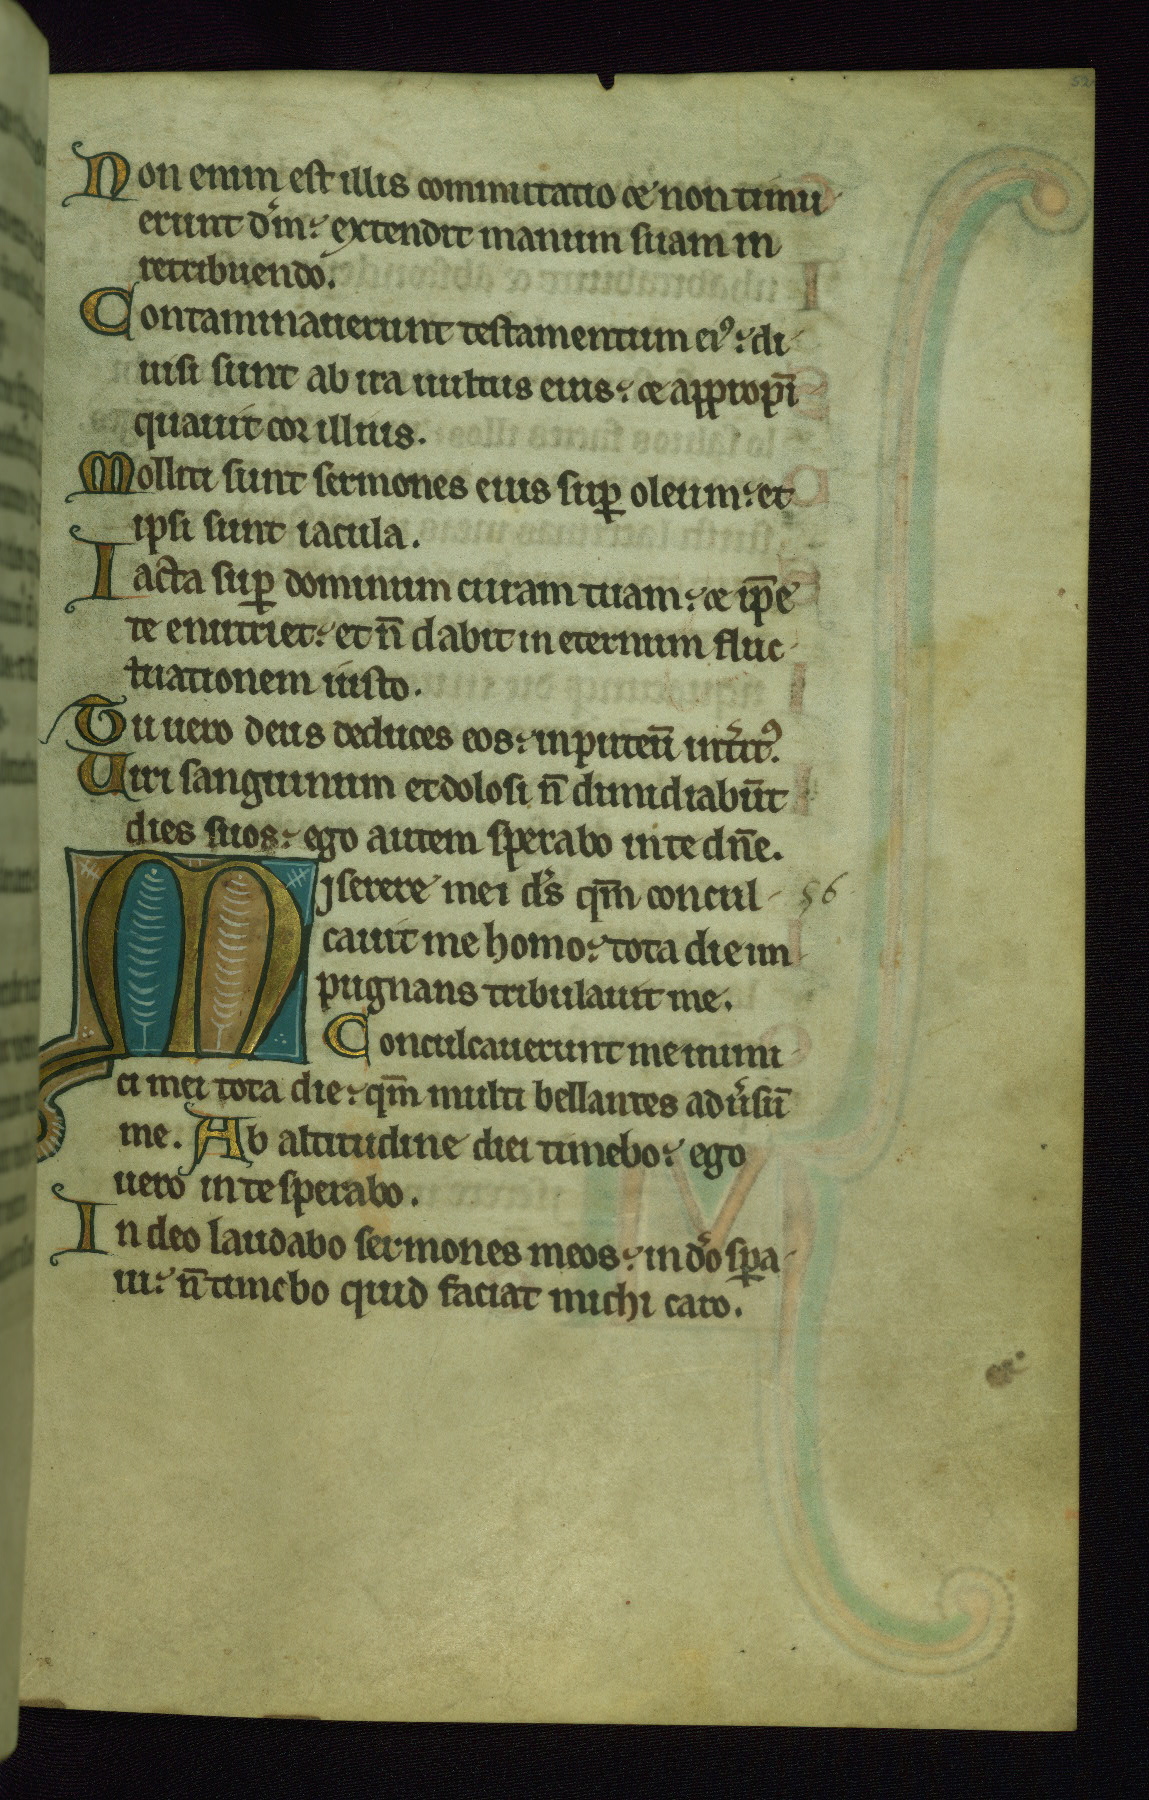 Non enim est illis commutatio & non timu
erunt dm̄: extendit manum suam in
retribuendo.
Contaminauerunt testamentum ei⁹: di
uisi sunt ab ira uultus eius: & appropī
quauit cor illius.
Molliti sunt sermones eius sup̲ oleum: et
ipsi sunt iacula.
Iacta sup̲ dominum curam tuam: & ip̄e
te enutriet: et n̄ dabit in eternum fluc
tuationem iusto.
Tu uero deus deduces eos: in puteū int̾it⁹.
Uiri sanguinum et dolosi n̄ dimidiabūt
dies suos: ego autem sperabo in te dn̄e.
Miserere mei d̾s qm̄ concul
56
cauit me homo: tota die im
pugnans tribulauit me.
Conculcauerunt me inimi
ci mei tota die: qm̄ multi bellantes adu̾sū
me. Ab altitudine diei timebo: ego
uero in te sperabo.
In deo laudabo sermones meos: in d̾o sp̲a
ui: n̄ timebo quid faciat michi caro.